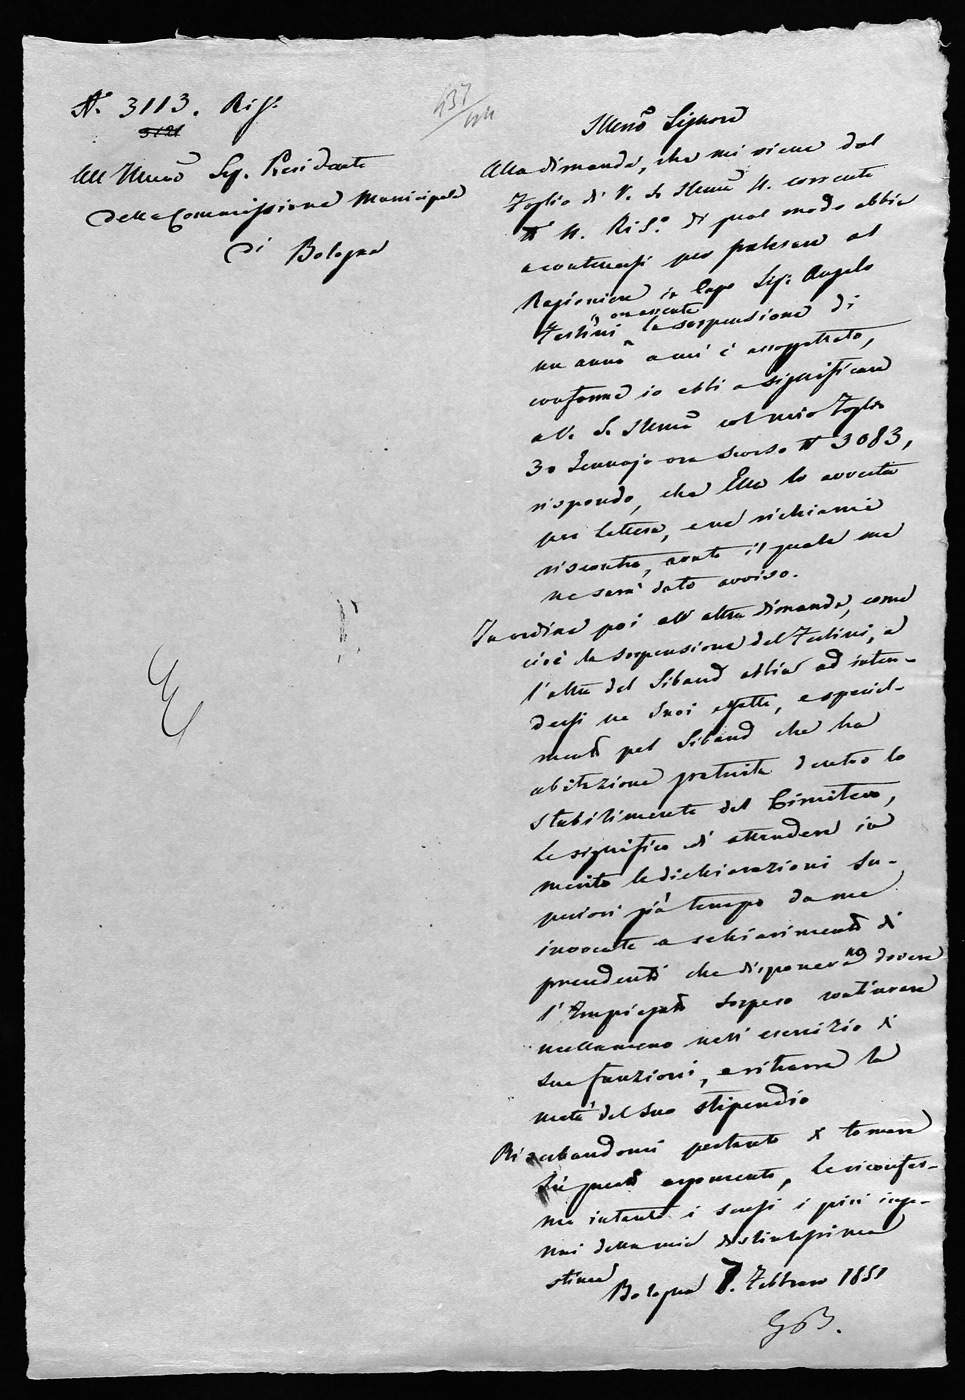 N. 3113. Ris.
3121
All'Illmo Sig. Presidente
della Commissione Municipale
di Bologna
437
Illmo Signore
Alla dimanda, che mi viene dal
Foglio di V. S. Illma 4. corrente
N 4. Ris. di qual modo abbia
a contenersi per palesare al
Ragioniere in Capo Sig. Angelo
Festini la sospensione di
un anno a cui è assoggettato,
conforme io ebbi a significare
alla S. Illma col mio Foglio
30 Gennajo ora scorso N 3083,
rispondo, che Ella lo avverta
per lettera, e ne richiami
riscontro, avuto il quale me
ne sarà dato avviso.
In ordine poi all'altra dimanda, come
cioè la sospensione del Festini, e
l'altra del Sibaud abbia ad inten-
dersi ne suoi effetti, e special-
mente pel Sibaud che ha
abitazione gratuita dentro lo
stabilimento del Cimitero,
Le significo di attendere in
merito le dichiarazioni Su-
periori già tempo da me
invocate a schiarimento di
precedenti che disponevano dovere
l'Impiegato sospeso continuare
nullameno nell'esercizio di
sue funzioni, e ritrarre la
metà del suo stipendio
Riserbandomi pertanto di tornare
su questo argomento, Le riconfer-
mo intanto i sensi i più inge-
nui della mia distintissima
stima
Bologna 7. Febbraro 1851
GB.